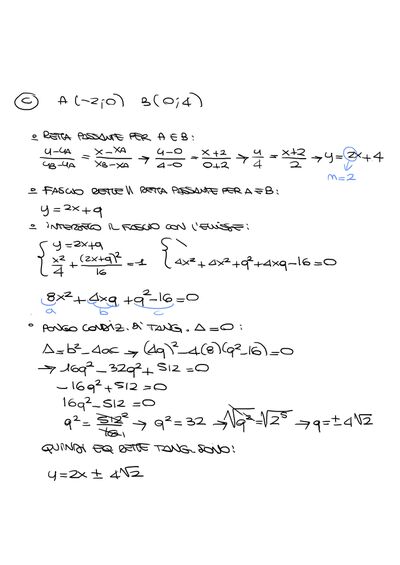 C A(-2;0) B(0;4)
RETTA PASSANTE PER A E B:
y-yA/yB-yA = x-xA/xB-xA → y-0/4-0 = x+2/0+2 → y/4 = x+2/2 → y=2x+4
m=2
FASCIO RETTE // RETTA PASSANTE PER A E B:
y=2x+q
INTERSECO IL FASCIO CON L'ELLISSE:
{ y=2x+q { \
x²/4 + (2x+q)²/16 = 1 4x²+4x²+q²+4xq-16=0
8x²+4xq+q²-16=0
a b c
PONGO CONDIZ. DI TANG. Δ=0:
Δ=b²-4ac → (4q)²-4(8)(q²-16)=0
→ 16q²-32q²+512=0
-16q²+512=0
16q²-512=0
q²= 512/16 → q²=32 → √q²=√2⁵ → q=±4√2
QUINDI EQ RETTE TANG. SONO:
y=2x ± 4√2